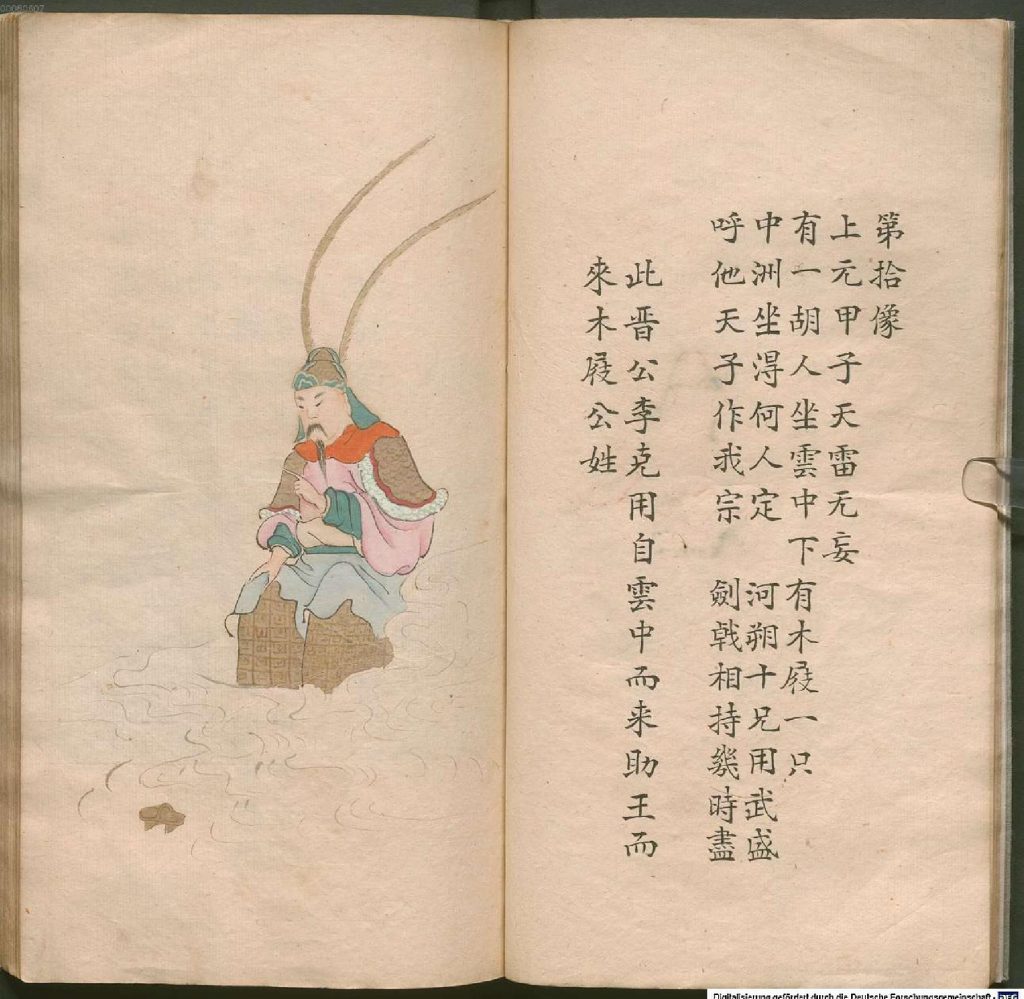 第拾像
上元甲子天雷无妄
有一胡人坐雲中下有木屐一只
中洲坐淂何人定 河朔十兄用武盛
呼他天子作我宗 劍戟相持幾時盡
此晋公李克用自雲中而来助王而
來木屐公姓
00060607
Digitalisierung gefördert durch die Deutsche Forschungsgemeinschaft - DFG